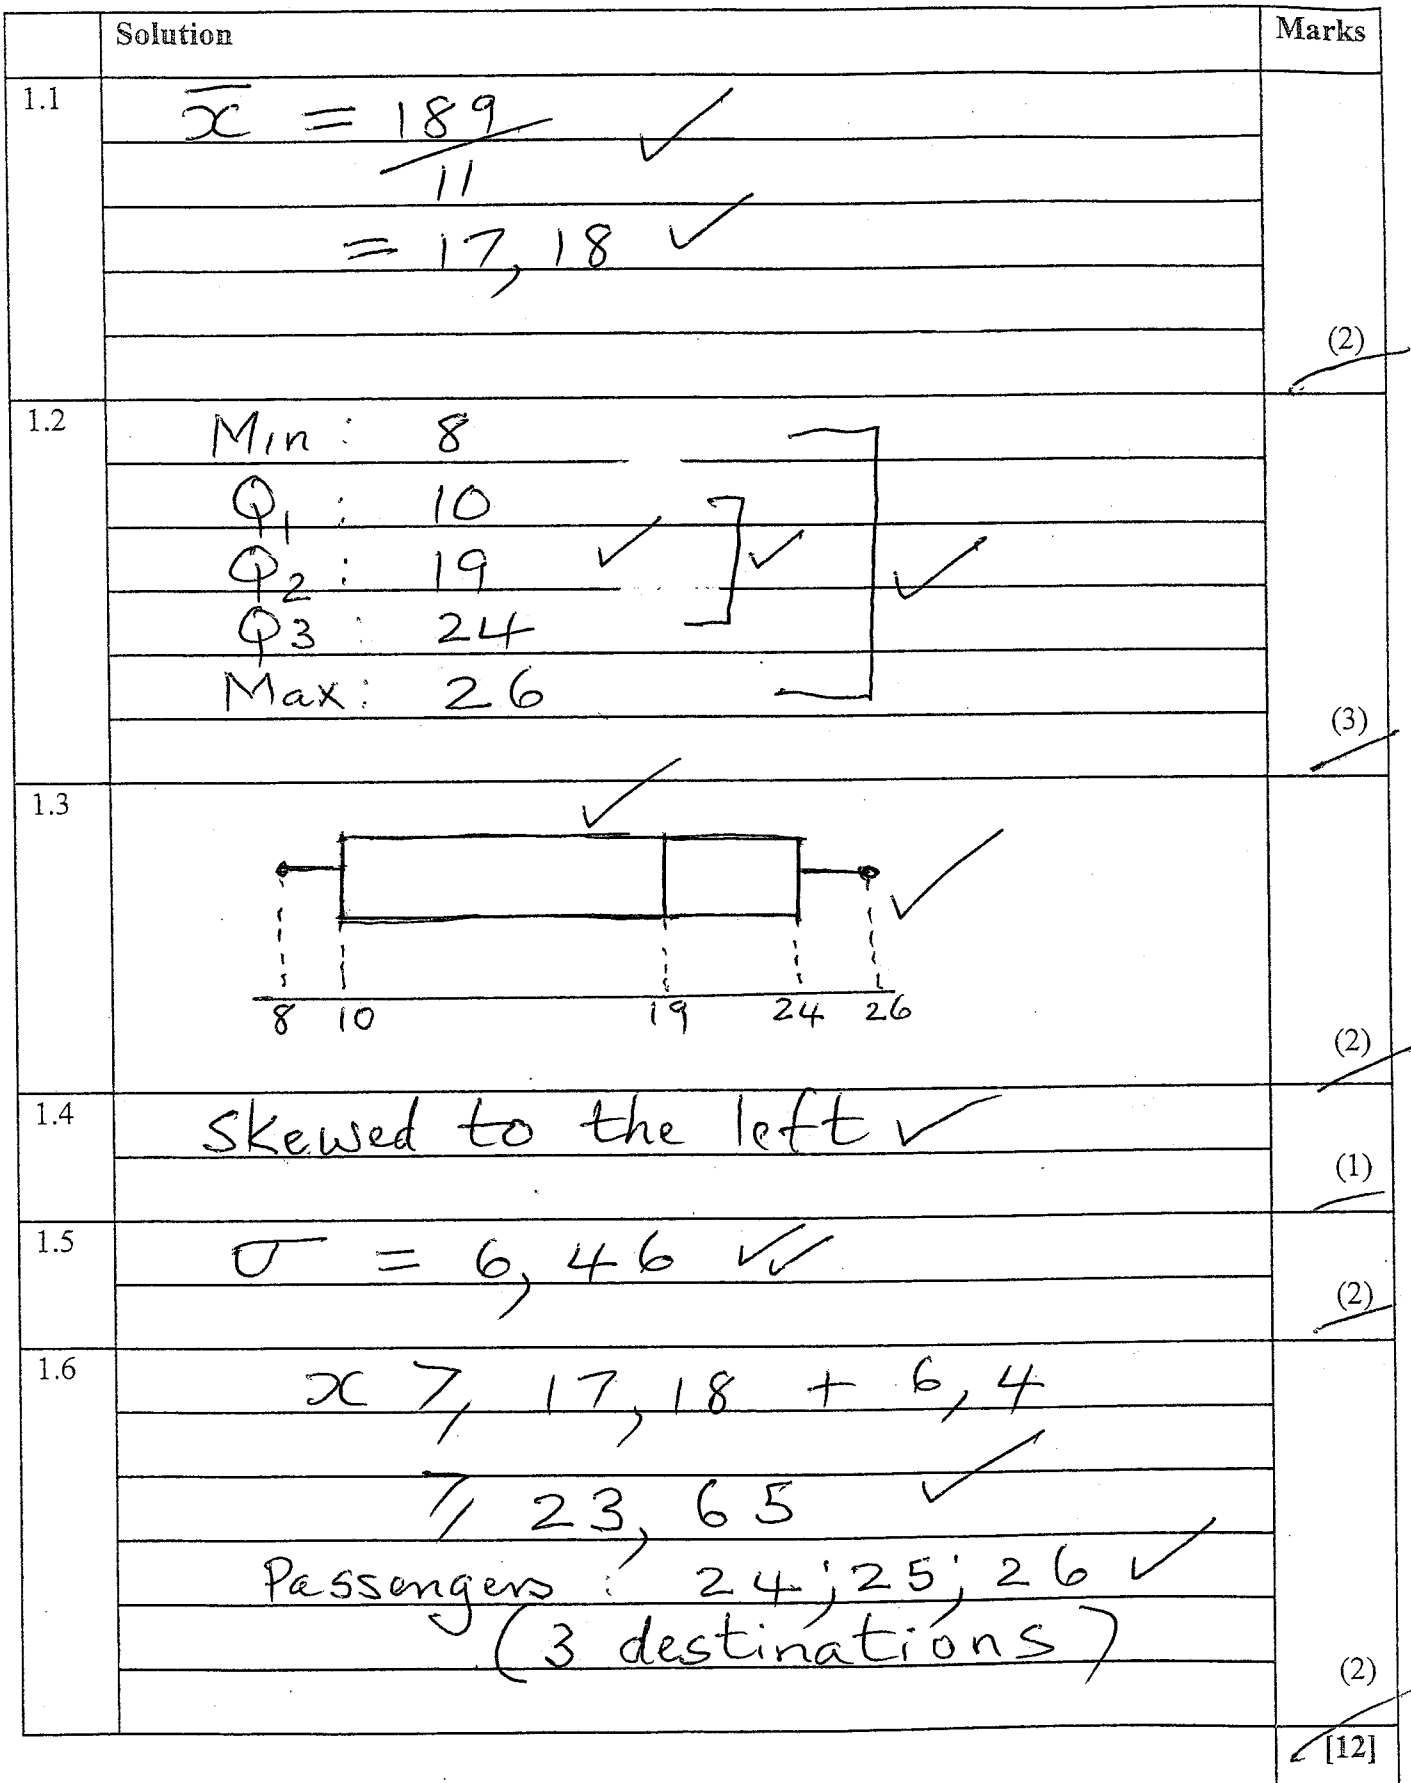 Solution Marks
1.1 x̄ = 189/11 ✓
= 17,18 ✓
(2)
1.2 Min : 8
Q1 : 10
Q2 : 19 ✓ ✓ ✓
Q3 : 24
Max : 26
(3)
1.3 ✓
✓
8 10 19 24 26
(2)
1.4 Skewed to the left ✓
(1)
1.5 σ = 6,46 ✓✓
(2)
1.6 x ⩾ 17,18 + 6,4
⩾ 23,65 ✓
Passengers : 24 ; 25 ; 26 ✓
(3 destinations)
(2)
[12]